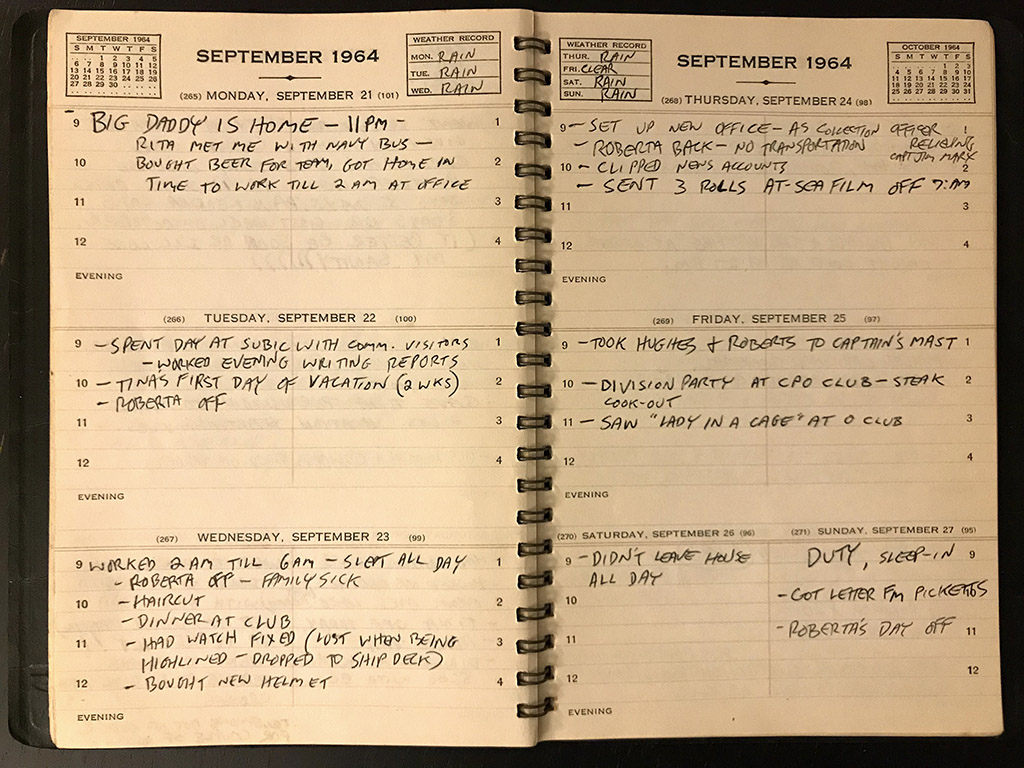 SEPTEMBER 1964
S M T W T F S
1 2 3 4 5
6 7 8 9 10 11 12
13 14 15 16 17 18 19
20 21 22 23 24 25 26
27 28 29 30
SEPTEMBER 1964
WEATHER RECORD
MON. RAIN
TUE. RAIN
WED. RAIN
(265) MONDAY, SEPTEMBER 21 (101)
9 BIG DADDY IS HOME - 11PM - 1
RITA MET ME WITH NAVY BUS -
10 BOUGHT BEER FOR TEAM, GOT HOME IN 2
TIME TO WORK TILL 2 AM AT OFFICE
11 3
12 4
EVENING
(266) TUESDAY, SEPTEMBER 22 (100)
9 - SPENT DAY AT SUBIC WITH COMM. VISITORS 1
- WORKED EVENING WRITING REPORTS
10 - TINA'S FIRST DAY OF VACATION (2 WKS) 2
- ROBERTA OFF
11 3
12 4
EVENING
(267) WEDNESDAY, SEPTEMBER 23 (99)
9 WORKED 2AM TILL 6AM - SLEPT ALL DAY 1
- ROBERTA OFF - FAMILY SICK
10 - HAIRCUT 2
- DINNER AT CLUB
11 - HAD WATCH FIXED (LOST WHEN BEING 3
HIGHLINED - DROPPED TO SHIP DECK)
12 - BOUGHT NEW HELMET 4
EVENING
WEATHER RECORD
THUR. RAIN
FRI. CLEAR
SAT. RAIN
SUN. RAIN
SEPTEMBER 1964
OCTOBER 1964
S M T W T F S
1 2 3
4 5 6 7 8 9 10
11 12 13 14 15 16 17
18 19 20 21 22 23 24
25 26 27 28 29 30 31
(268) THURSDAY, SEPTEMBER 24 (98)
9 - SET UP NEW OFFICE - AS COLLECTION OFFICER 1
- ROBERTA BACK - NO TRANSPORTATION RELIEVING
CAPT JIM MARX
10 - CLIPPED NEWS ACCOUNTS 2
- SENT 3 ROLLS AT-SEA FILM OFF 7:AM
11 3
12 4
EVENING
(269) FRIDAY, SEPTEMBER 25 (97)
9 - TOOK HUGHES & ROBERTS TO CAPTAIN'S MAST 1
10 - DIVISION PARTY AT CPO CLUB - STEAK 2
COOK-OUT
11 - SAW "LADY IN A CAGE" AT O CLUB 3
12 4
EVENING
(270) SATURDAY, SEPTEMBER 26 (96)
9 - DIDN'T LEAVE HOUSE
ALL DAY
10
11
12
EVENING
(271) SUNDAY, SEPTEMBER 27 (95)
DUTY, SLEEP-IN 9
- GOT LETTER FM
- ROBERTA'S DAY OFF 11
12